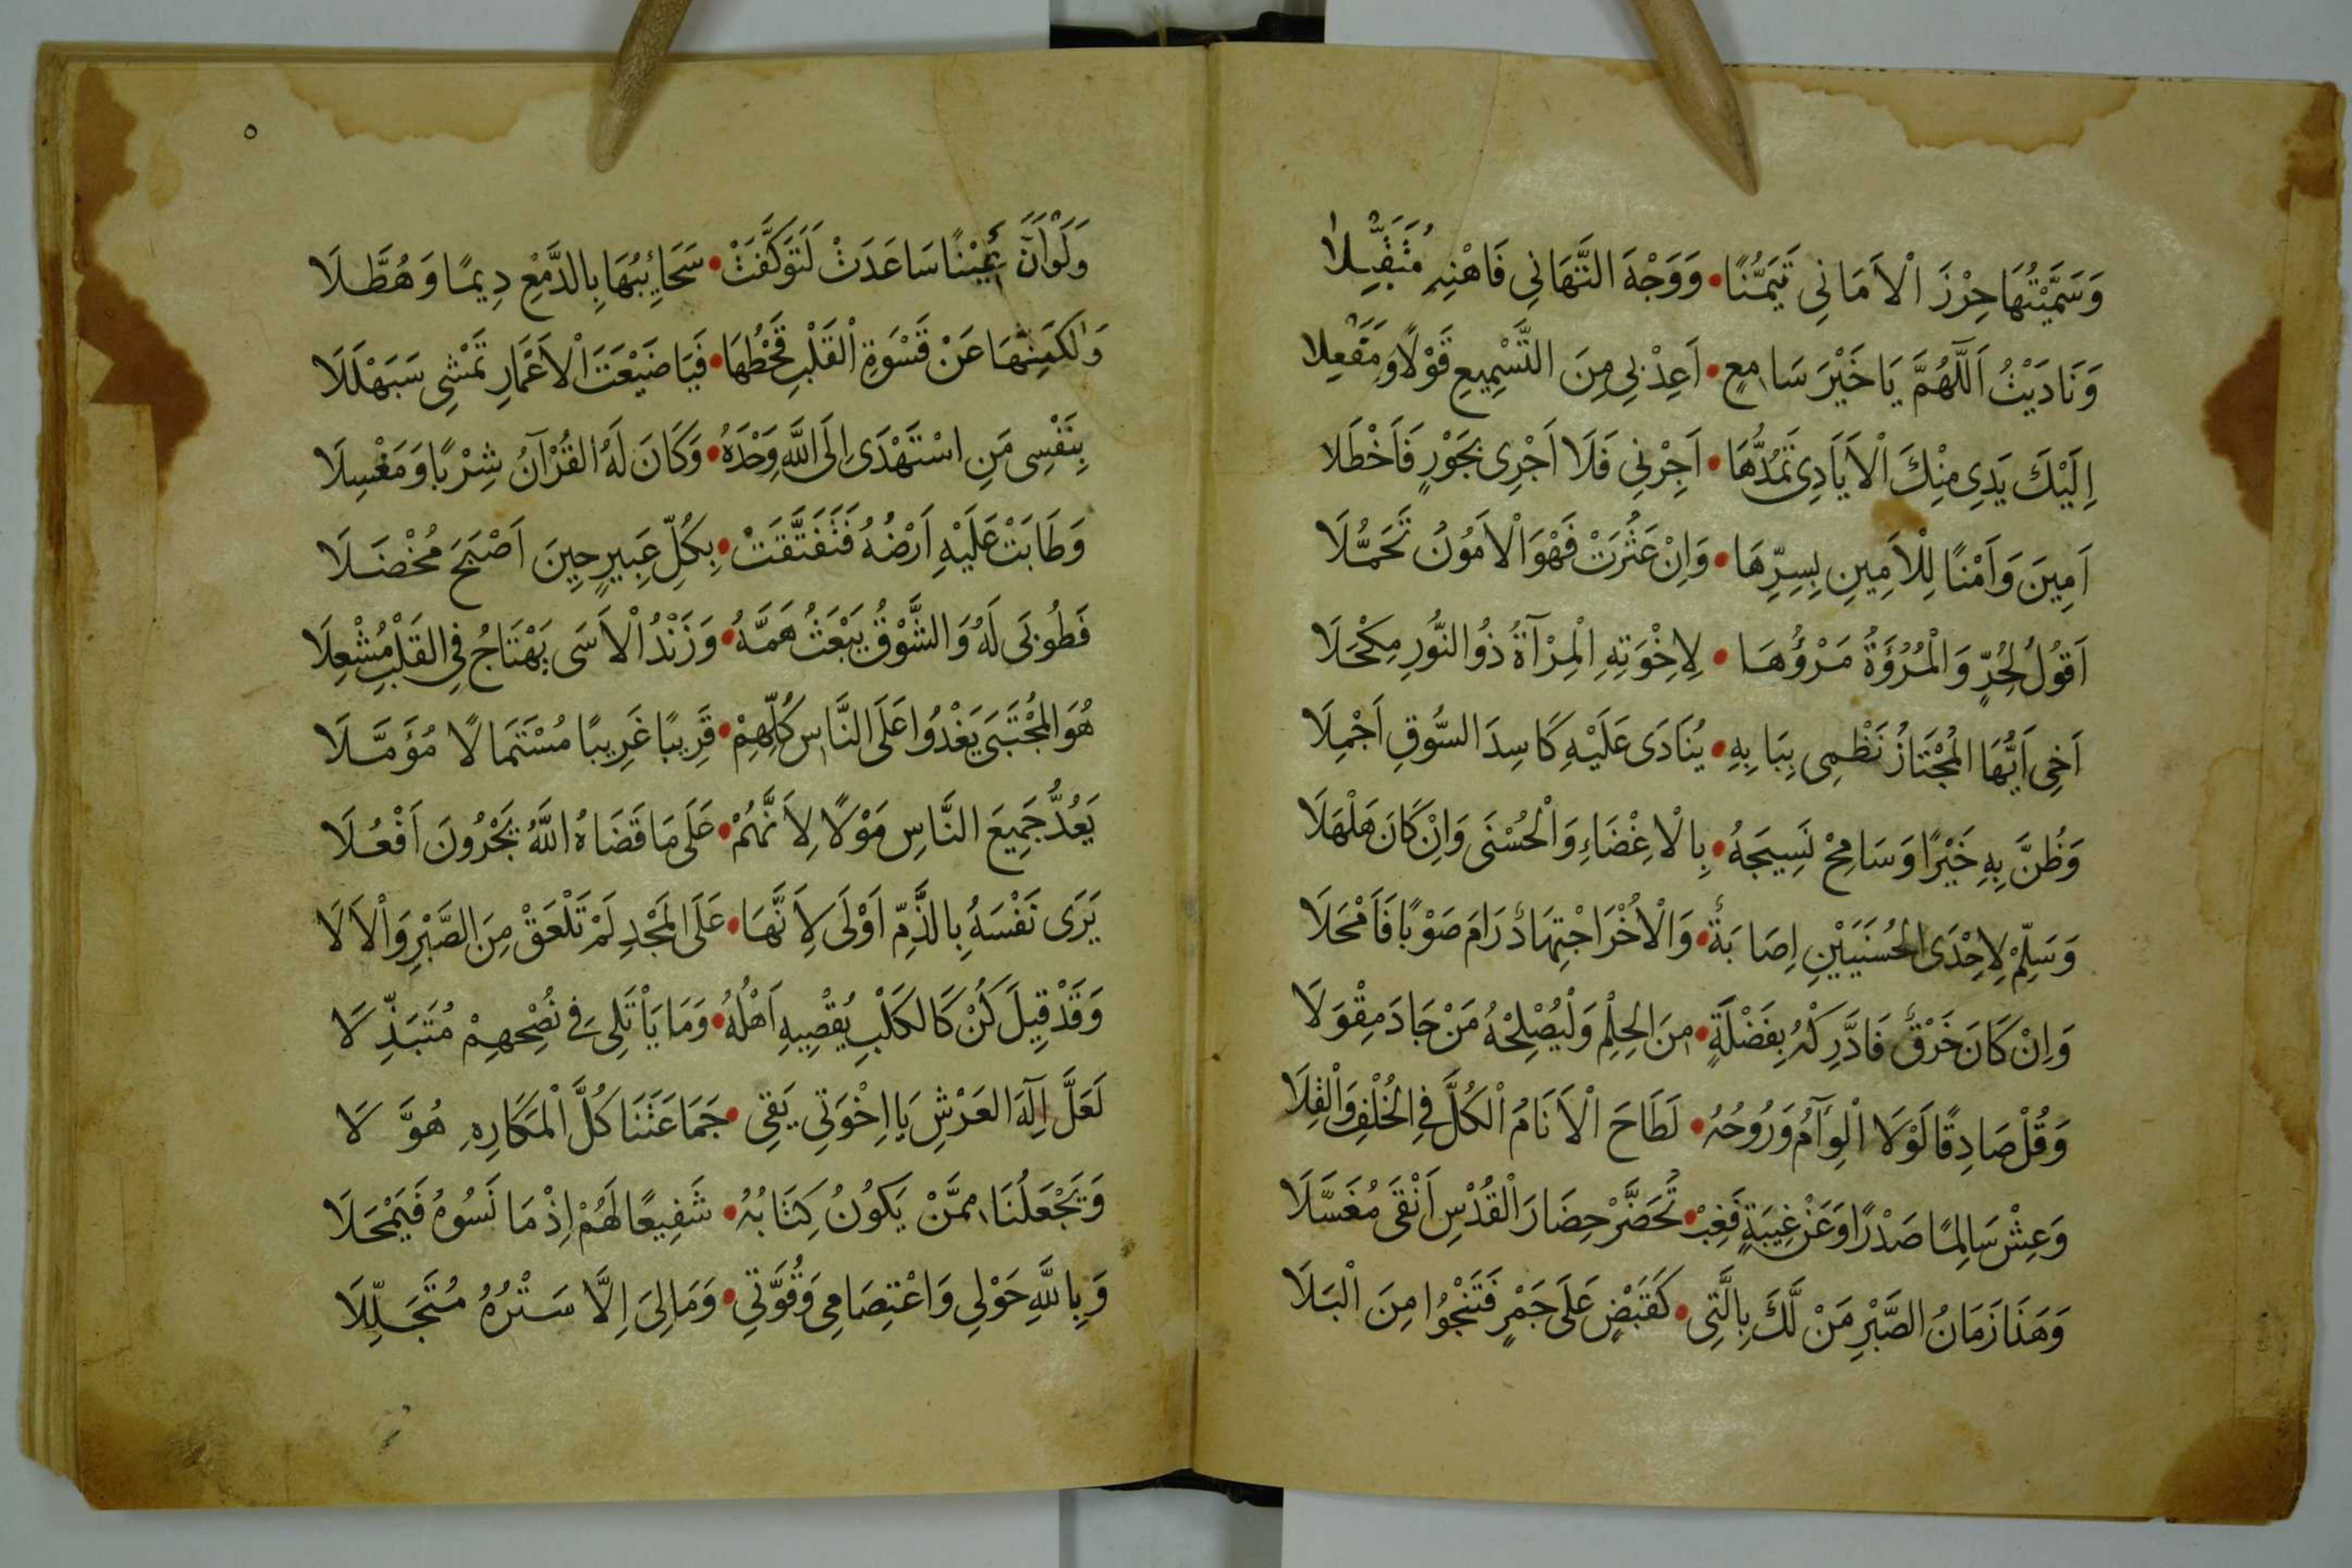 وَسَمَّيْتُهَا حِرْزَ الْاَمَانِي تَيَمُّنًا • وَوَجْهَ التَّهَانِي فَاهْنِهِ مُتَقَبِّلَا
وَنَادَيْتُ اَللّٰهُمَّ يَا خَيْرَ سَامِعٍ • اَعِذْنِي مِنَ التَّسْمِيعِ قَوْلًا وَمَفْعِلَا
اِلَيْكَ يَدِى مِنْكَ الْاَيَادِى تَمُدُّهَا • اَجِرْنِي فَلَا اَجْرِى بِجَوْرٍ فَاَخْطَلَا
اَمِينَ وَاَمْنًا لِلْاَمِينِ بِسِرِّهَا • وَاِنْ عَثَرَتْ فَهْوَ الْاَمُونُ تَحَمُّلَا
اَقُولُ لِحُرٍّ وَالْمُرُؤَةُ مَرْؤُهَا • لِاِخْوَتِهِ الْمِرْآةُ ذُو النُّورِ مِكْحَلَا
اَخِى اَيُّهَا الْمُجْتَازُ نَظْمِى بِبَابِهِ • يُنَادَى عَلَيْهِ كَاسِدَ السُّوقِ اَجْمِلَا
وَظُنَّ بِهِ خَيْرًا وَسَامِحْ نَسِيجَهُ • بِالْاِغْضَاءِ وَالْحُسْنَى وَاِنْ كَانَ هَلْهَلَا
وَسَلِّمْ لِاِحْدَى الْحُسْنَيَيْنِ اِصَابَةٌ • وَالْاُخْرَا اجْتِهَادٌ رَامَ صَوْبًا فَاَمْحَلَا
وَاِنْ كَانَ خَرْقٌ فَادَّرِكْهُ بِفَضْلَةٍ • مِنَ الْحِلْمِ وَلْيُصْلِحْهُ مَنْ جَادَ مِقْوَلَا
وَقُلْ صَادِقًا لَوْلَا الْوِآمُ وَرُوحُهُ • لَطَاحَ الْاَنَامُ الْكُلُّ فِي الْخُلْفِ وَالْقِلَا
وَعِشْ سَالِمًا صَدْرًا وَعَنْ غِيبَةٍ فَغِبْ • تُحَضَّرْ حِضَارَ الْقُدْسِ اَنْقَى مُغَسَّلَا
وَهَذَا زَمَانُ الصَّبْرِ مَنْ لَّكَ بِالَّتِى • كَقَبْضٍ عَلَى جَمْرٍ فَتَنْجُوا مِنَ الْبَلَا
٥
وَلَوْ اَنَّ عَيْنًا سَاعَدَتْ لَتَوَكَّفَتْ • سَحَائِبُهَا بِالدَّمْعِ دِيمًا وَهُطَّلَا
وَلٰكِنَّهَا عَنْ قَسْوَةِ الْقَلْبِ قَحْطُهَا • فَيَا ضَيْعَتَ الْاَعْمَارِ تَمْشِى سَبَهْلَلَا
بِنَفْسِى مَنِ اسْتَهْدَى اِلَى اللَّهِ وَحْدَهُ • وَكَانَ لَهُ الْقُرْآنُ شِرْبًا وَمَغْسِلَا
وَطَابَتْ عَلَيْهِ اَرْضُهُ فَتَفَتَّقَتْ • بِكُلِّ عَبِيرٍ حِينَ اَصْبَحَ مُخْضَلَا
فَطُوبَى لَهُ وَالشَّوْقُ يَبْعَثُ هَمَّهُ • وَزَنْدُ الْاَسَى يَهْتَاجُ فِي الْقَلْبِ مُشْعِلَا
هُوَ الْمُجْتَبَى يَغْدُوا عَلَى النَّاسِ كُلِّهِمْ • قَرِيبًا غَرِيبًا مُسْتَمَالًا مُؤَمَّلَا
يَعُدُّ جَمِيعَ النَّاسِ مَوْلًا لِاَنَّهُمْ • عَلَى مَا قَضَاهُ اللَّهُ يَجْرُونَ اَفْعُلَا
يَرَى نَفْسَهُ بِالذَّمِّ اَوْلَى لِاَنَّهَا • عَلَى الْمَجْدِ لَمْ تَلْعَقْ مِنَ الصَّبْرِ وَالْاَلَا
وَقَدْ قِيلَ كُنْ كَالْكَلْبِ يُقْصِيهِ اَهْلُهُ • وَمَا يَاْتَلِى فِي نُصْحِهِمْ مُتَبَذِّلَا
لَعَلَّ اِلٰهَ الْعَرْشِ يَا اِخْوَتِي يَقِى • جَمَاعَتَنَا كُلَّ الْمَكَارِهِ هُوَّلَا
وَيَجْعَلُنَا مِمَّنْ يَكُونُ كِتَابُهُ • شَفِيعًا لَهُمْ اِذْ مَا نَسُوهُ فَيَمْحَلَا
وَبِاللَّهِ حَوْلِى وَاعْتِصَامِى وَقُوَّتِي • وَمَا لِىَ اِلَّا سَتْرُهُ مُتَجَلِّلَا